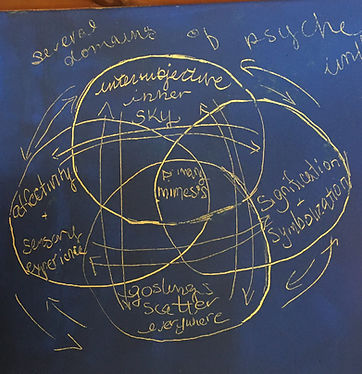 several
domains of psyche
uni
intersubjective
inner
sky
affectivity
+
sensory
experience
primary
mimesis
Signification
+
Symbolization
goslings
scatter
everywhere